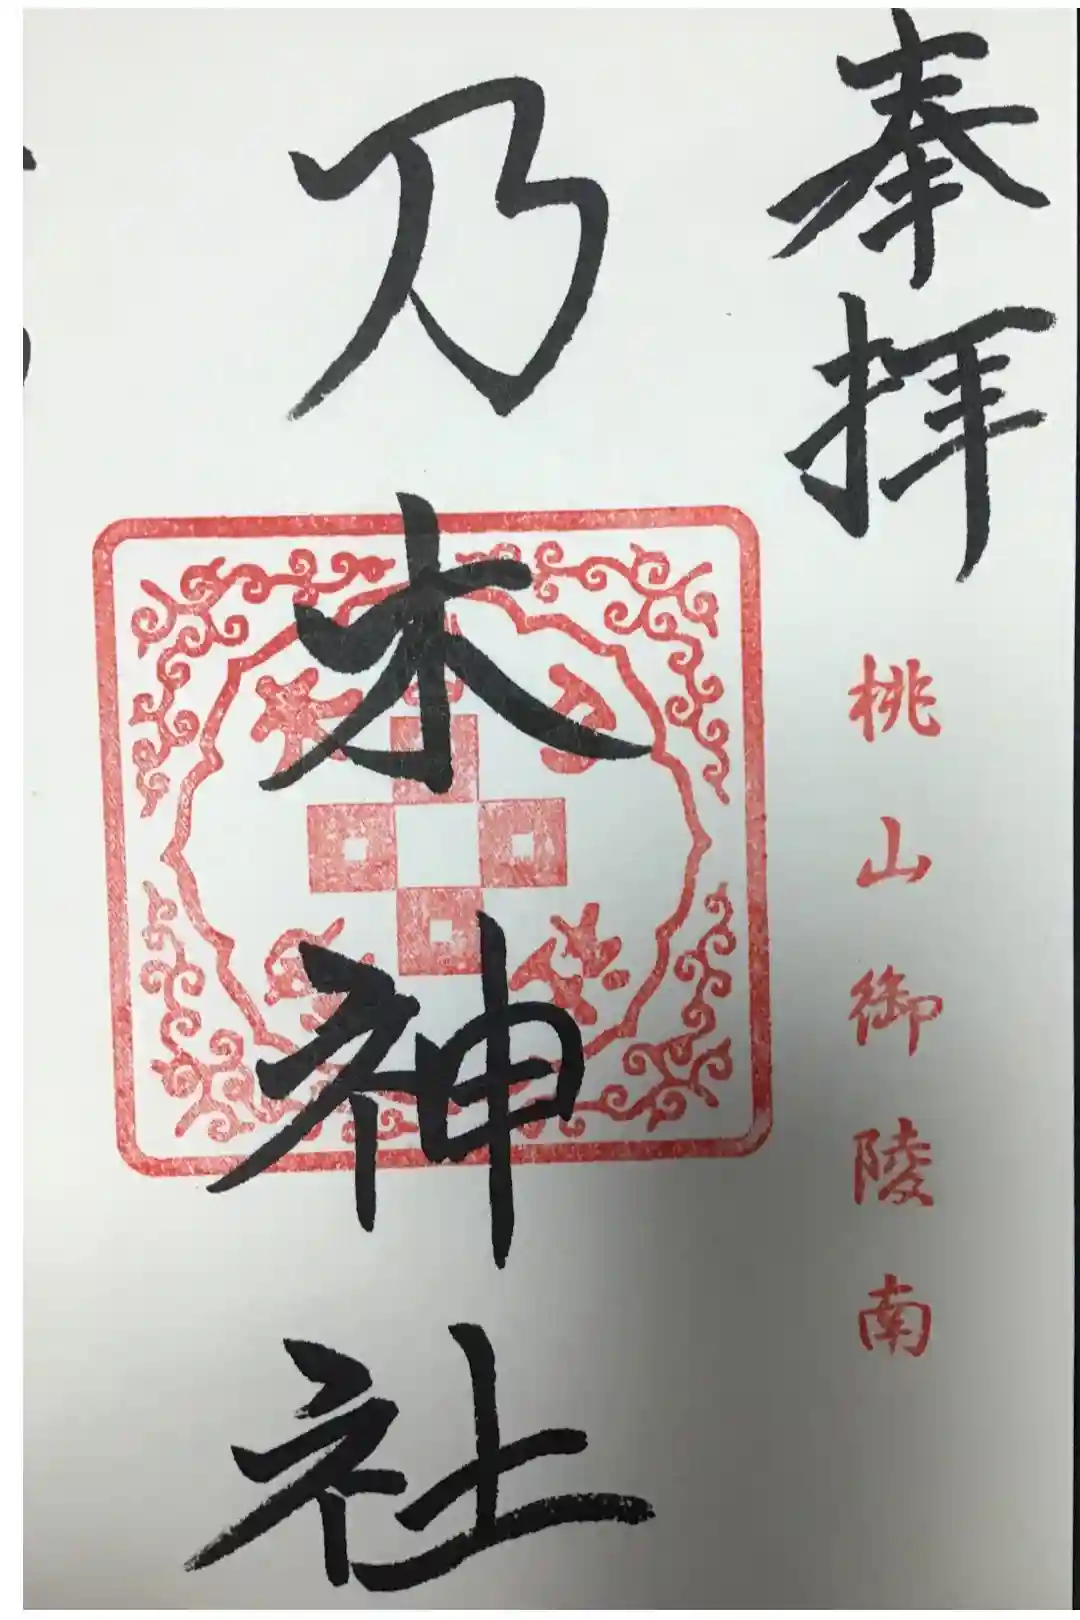 奉拝
桃山御陵南
乃木神社